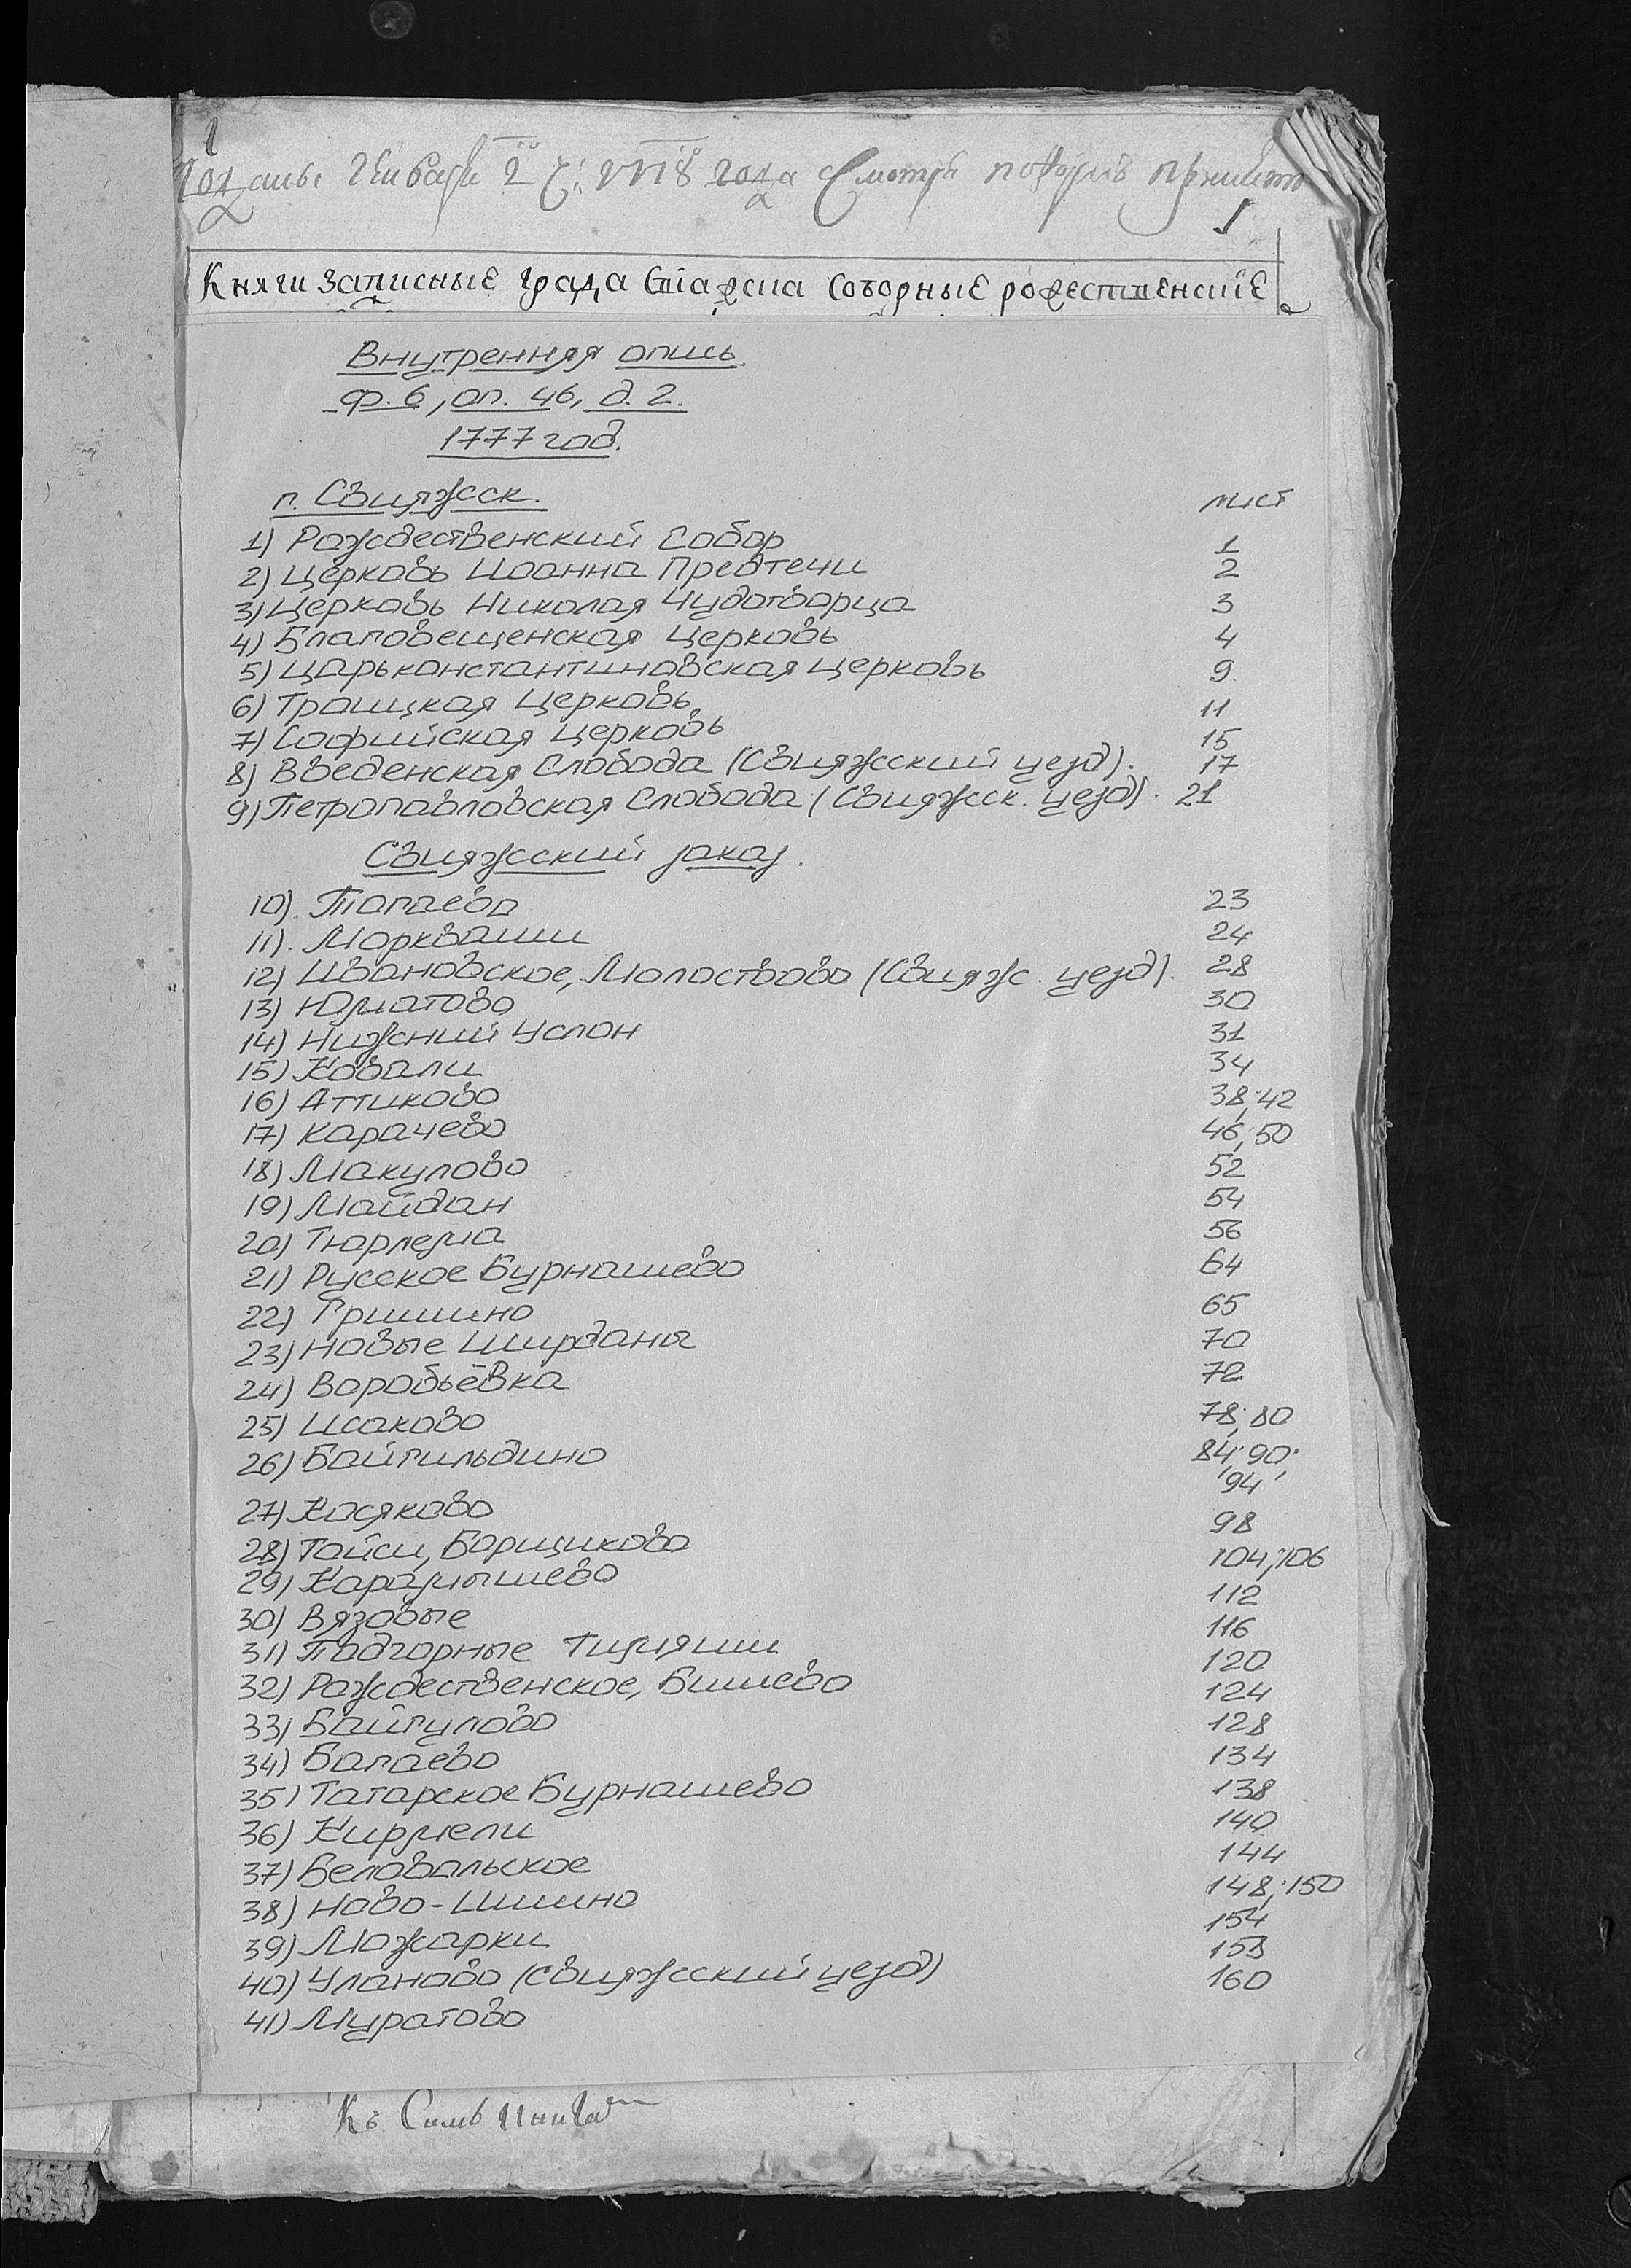 1
Поданы Генваря 2 ч: 1778 года Смотря
1
Книги записные града Свіяжска Соборные рожественские
Внутренняя опись
ф. 6, оп. 46, д. 2.
1777 год.
г. Свияжск. лист
1) Рождественский Собор 1
2) Церковь Иоанна Предтечи 2
3) Церковь Николая Чудотворца 3
4) Благовещенская Церковь 4
5) Царьконстантиновская Церковь 9
6) Троицкая Церковь 11
7) Софийская Церковь 15
8) Введенская Слобода (Свияжский уезд). 17
9) Петропавловская Слобода (Свияжск. уезд). 21
Свияжский заказ.
10). Тагаево 23
11). Моркваши 24
12) Ивановское, Молоствово (Свияж. уезд). 28
13) Юматово 30
14) Нижний Услон 31
15) Ковали 34
16) Аттиково 38; 42
17) Карачево 46; 50
18) Макулово 52
19) Майдан 54
20) Тюрлема 56
21) Русское Бурнашево 64
22) Гришино 65
23) Новые Ширданы 70
24) Воробьёвка 72
25) Исаково 78; 80
26) Байгильдино 84; 90;
94
27) Косяково 98
28) Тойси, Борщиково 104; 106
29) Карамышево 112
30) Вязовые 116
31) Подгорные Тимяши 120
32) Рождественское, Бишево 124
33) Байгулово 128
34) Багаево 134
35) Татарское Бурнашево 138
36) Кирмели 140
37) Беловольское 144
38) Ново-Ишино 148; 150
39) Можарки 154
40) Уланово (Свияжсский уезд) 158
41) Муратово 160
Къ